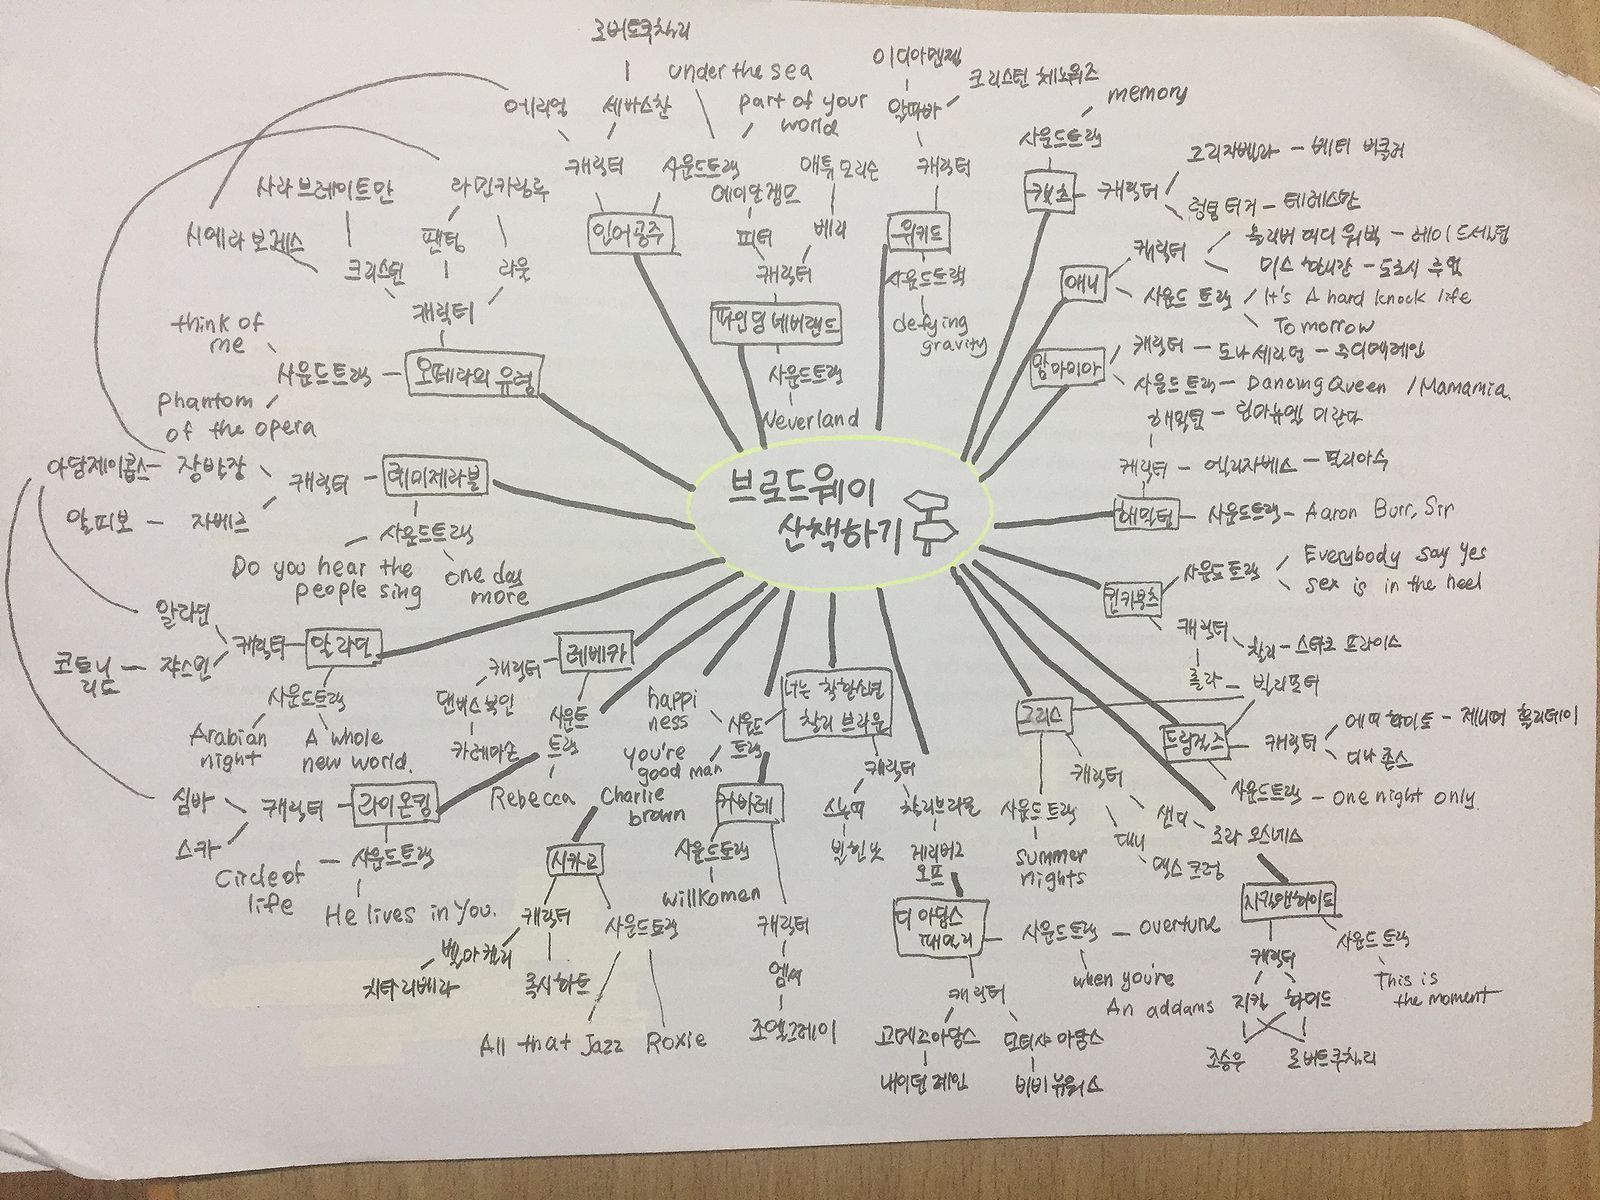 브로드웨이
산책하기
로버트쿠찰리
under the sea
이디아멘젤
크리스틴 체노위즈
memory
에리얼
세바스찬
part of your
world
알파바
사운드트랙
그리자벨라 - 베티 버클리
캐릭터
사운드트랙
애튜 모리슨
캐릭터
캣츠
캐릭터
럼텀터거 - 테레스만
사라브레이트만
라민카림루
에이얄젬모
인어공주
위키드
시에라 보게스
팬텀
피터
베리
캐릭터
미스 해니간 - 도로시 루던
크리스틴
라울
캐릭터
사운드트랙
애니
사운드 트랙
It's A hard knock life
Tomorrow
캐릭터
파인딩 네버랜드
defying
gravity
think of
me
사운드트랙
오페라의 유령
사운드트랙
맘마미아
캐릭터
사운드트랙 - Dancing Queen / Mamamia
Neverland
phantom
of the opera
해밀턴 - 린마뉴엘 미란다
아담제이콥스 - 장발장
캐릭터
레미제라블
캐릭터 - 엘리자베스 - 필리아수
알피보 - 자베르
해밀턴
사운드트랙 - Aaron Burr, Sir
사운드트랙
Do you hear the
people sing
one day
more
사운드트랙
Everybody say yes
sex is in the heel
킨키부츠
알라딘
캐릭터
알라딘
코트니
리드
쟈스민
캐릭터
찰리 - 스타크 프라이스
롤라 - 빌리포터
사운드트랙
Arabian
night
A whole
new world.
캐릭터
레베카
댄버스 부인
사운드
트랙
Rebecca
happi
ness
사운드
트랙
you're
good man
Charlie
brown
너는 착한소년
찰리 브라운
캐릭터
스누피
찰리브라운
그리스
캐릭터
사운드트랙
summer
nights
샌디
대니
로라 오스네스
드림걸즈
캐릭터
에피 화이트 - 제니퍼 홀리데이
디나 존스
사운드트랙 - one night only.
심바
스카
캐릭터
라이온킹
사운드트랙
Circle of
life
He lives in you.
시카고
캐릭터
벨마 켈리
치타 리베라
록시하트
사운드트랙
All that Jazz
Roxie
카바레
사운드트랙
willkomen
캐릭터
엠씨
조엘그레이
디 아담스
패밀리
사운드트랙 - overture
when you're
An addams
캐릭터
고메즈아담스
네이던 레인
모티샤 아담스
비비 뉴워스
지킬앤하이드
캐릭터
지킬
하이드
조승우
로버트쿠찰리
사운드트랙
This is
the moment